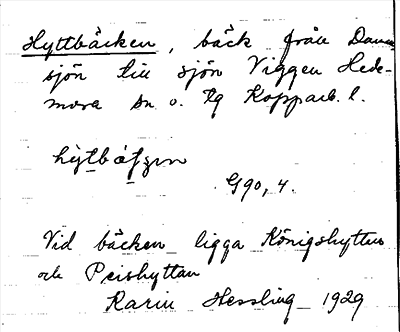 Hyttbäcken, bäck från Damm
sjön till sjön Viggen Hede-
mora sn o. tg Kopparb. l.
G90, 4.
Vid bäcken ligga Königshyttan
och Peishyttan
Karin Hessling 1929